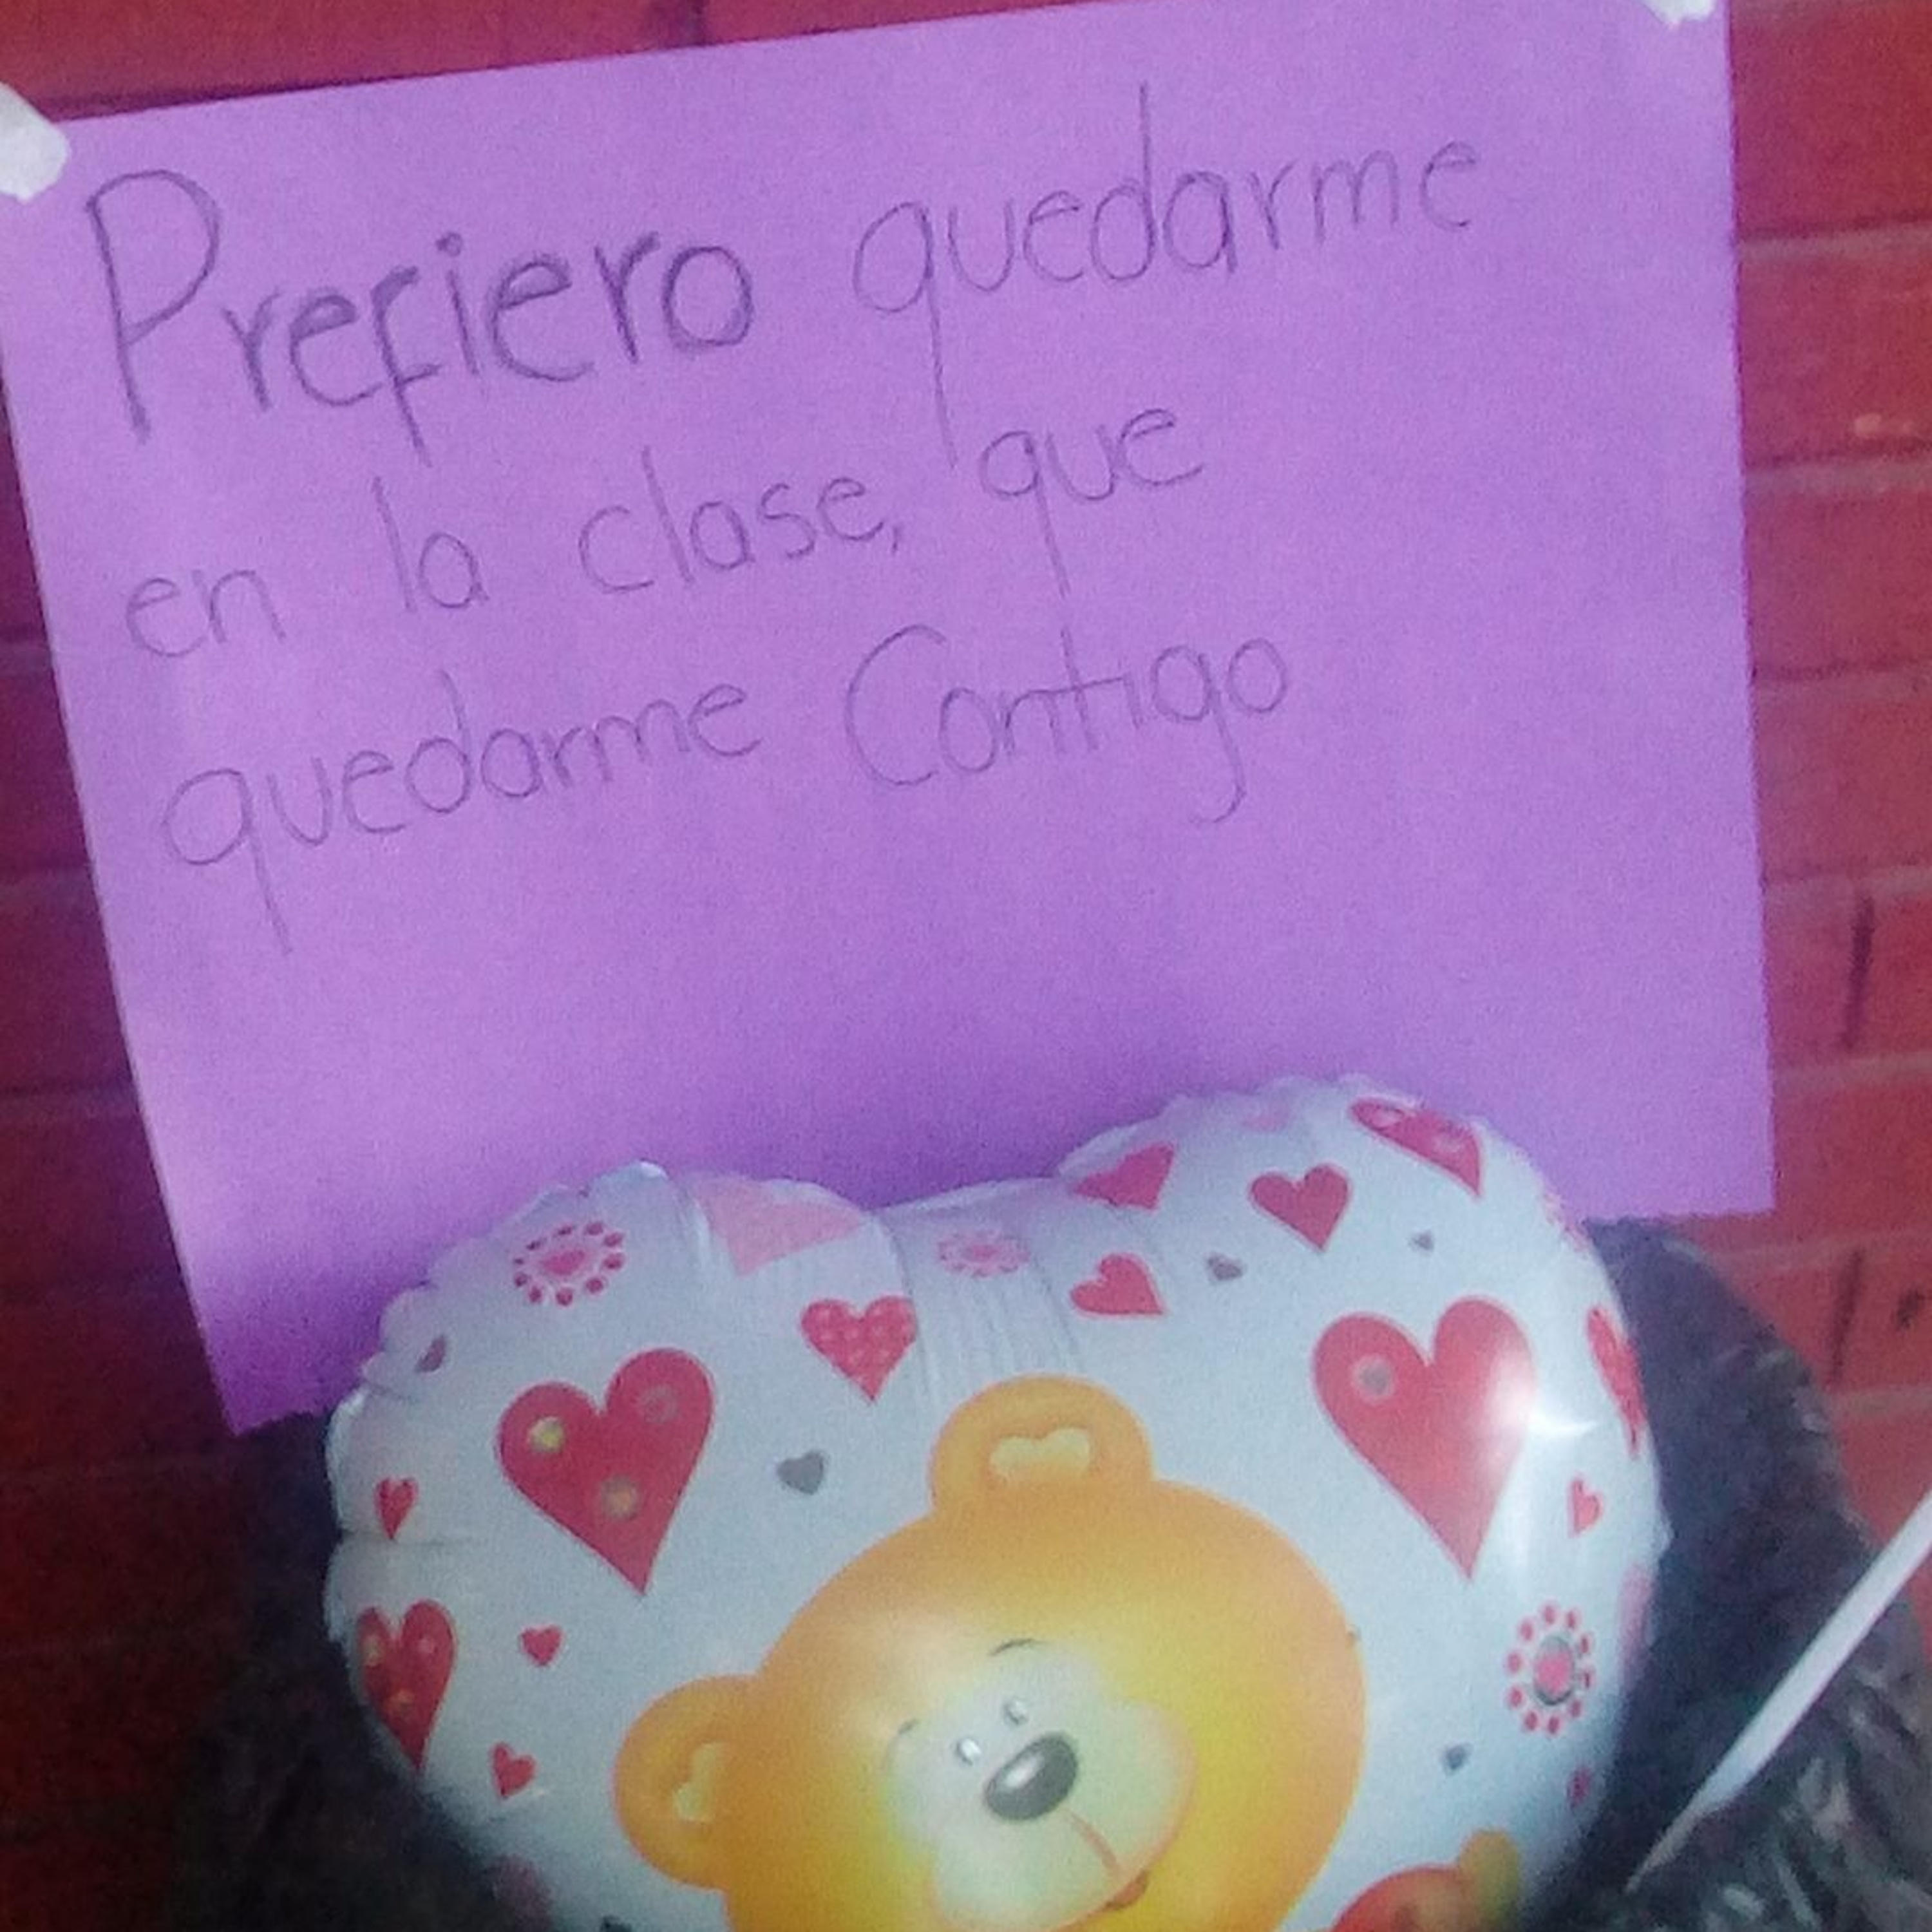 Prefiero quedarme
en la clase, que
quedarme Contigo